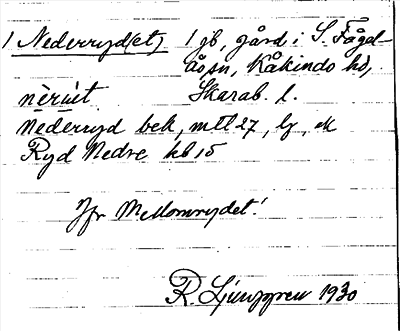 1 Nederryd(et) 1 jb. gård i S. Fågel-
åssn, Kåkinds hd,
Skarab. l.
Nederryd bek, mtl 27, by, M
Ryd Nedre hb 15
Jfr Mellomrydet!
R. Ljunggren 1930